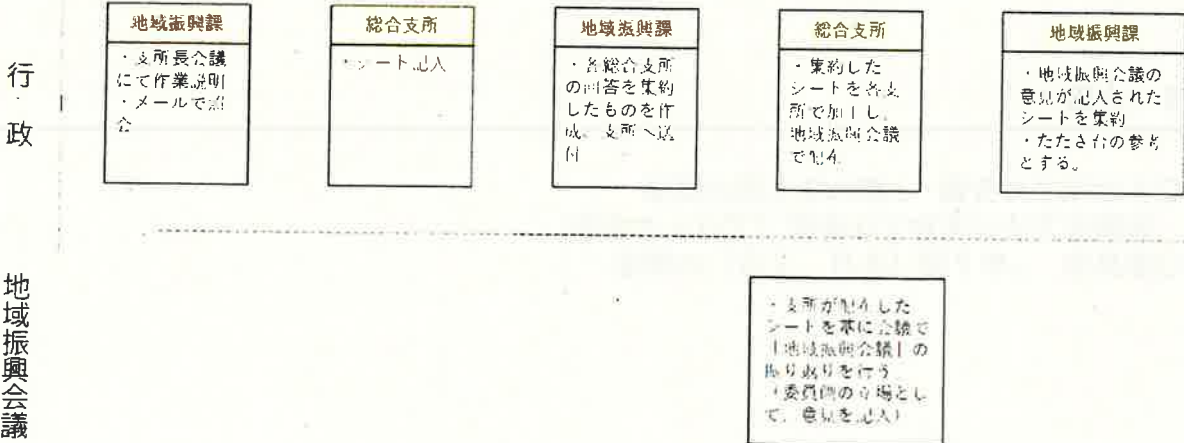 行・政
地域振興課
・支所長会議
にて作業説明
・メールで照
会
総合支所
・シート記入
地域振興課
・各総合支所
の回答を集約
したものを作
成、支所へ送
付
総合支所
・集約した
シートを各支
所で加工し、
地域振興会議
で配布
地域振興課
・地域振興会議の
意見が記入された
シートを集約
・たたき台の参考
とする。
地域振興会議
・支所が配布した
シートを基に会議で
「地域振興会議」の
振り返りを行う
(委員側の立場とし
て、意見を記入)